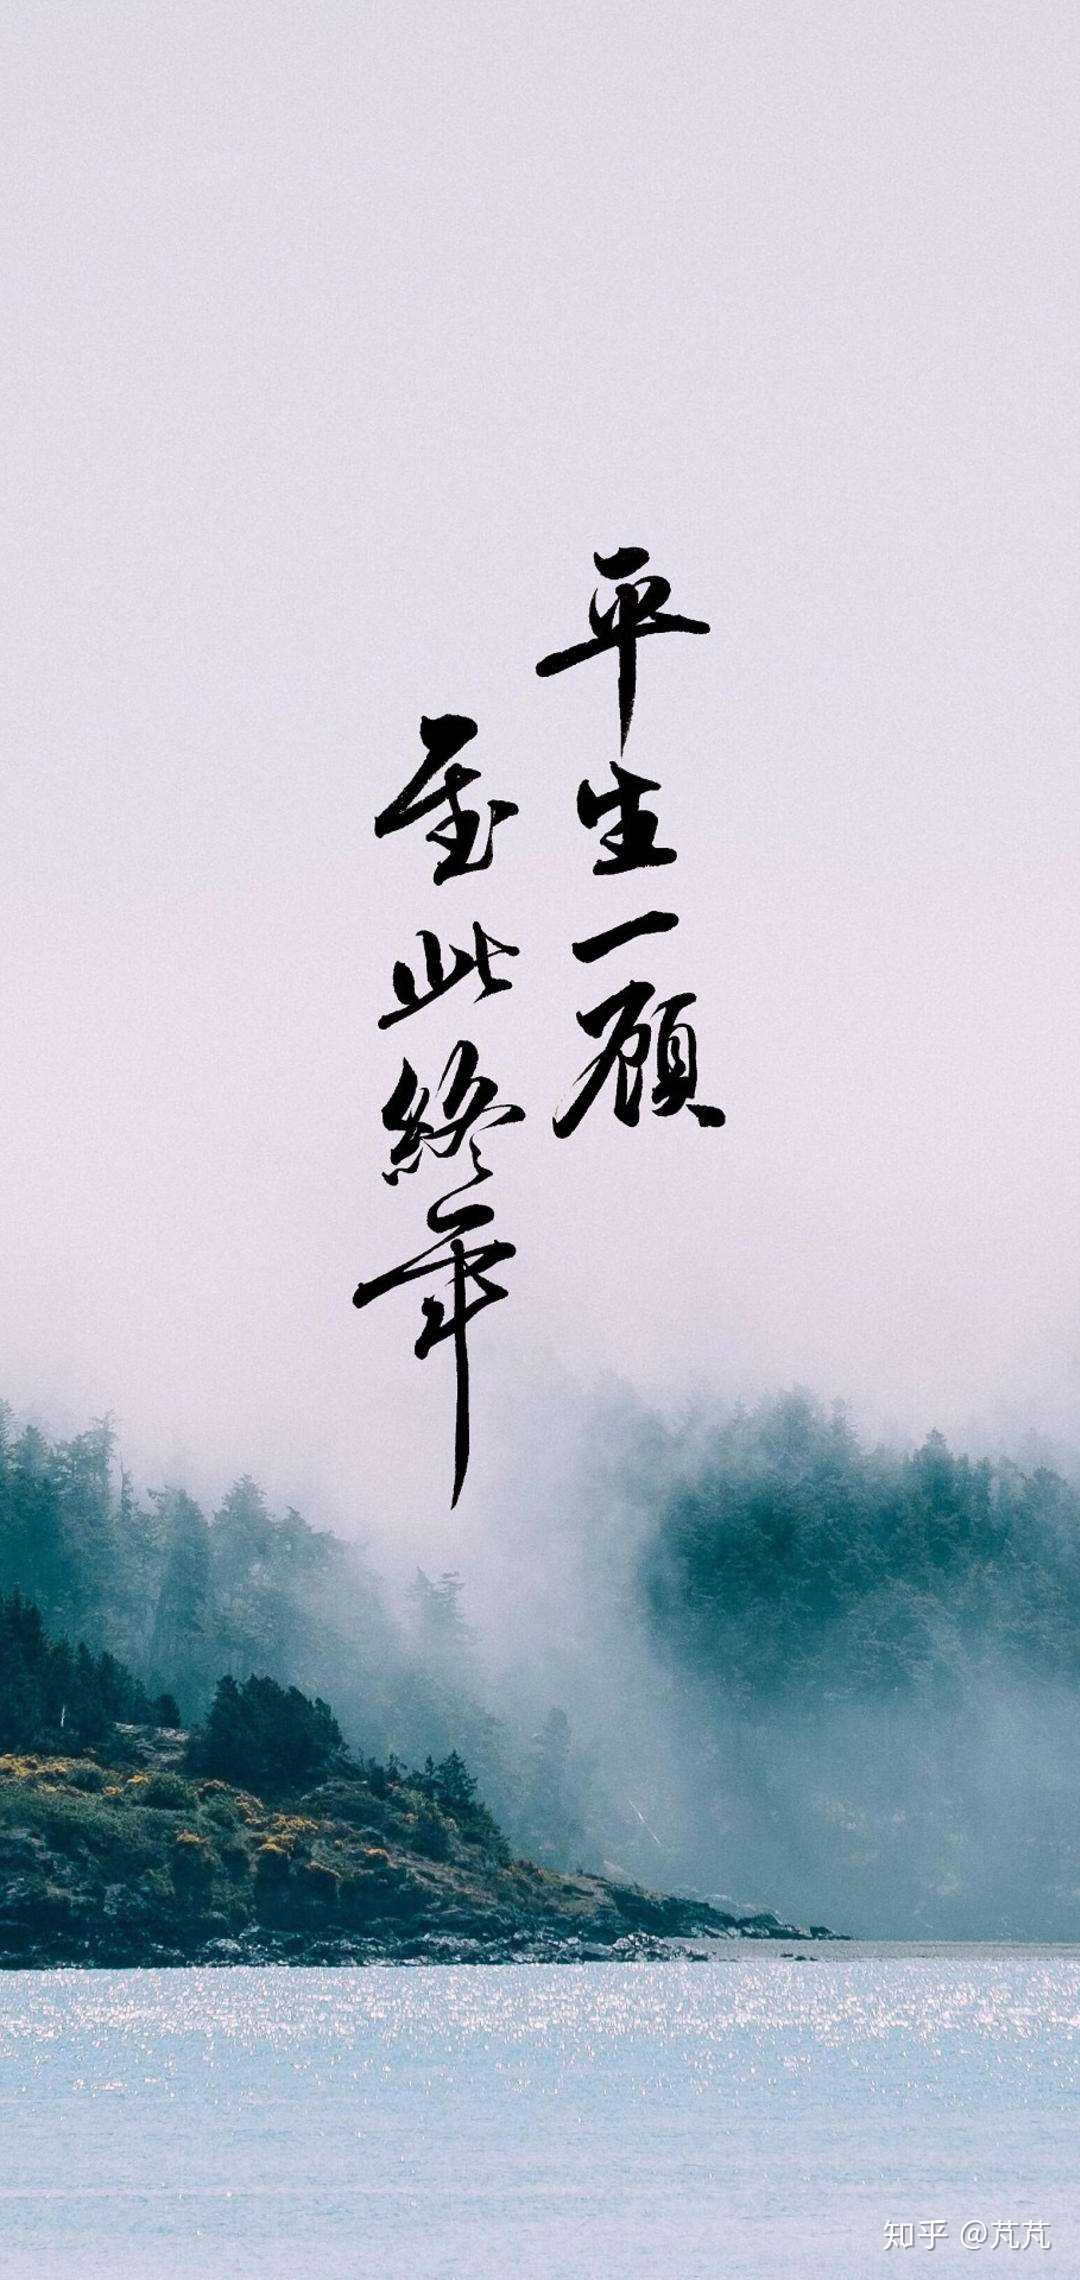 平生一顾
至此終年
知乎 @芃芃